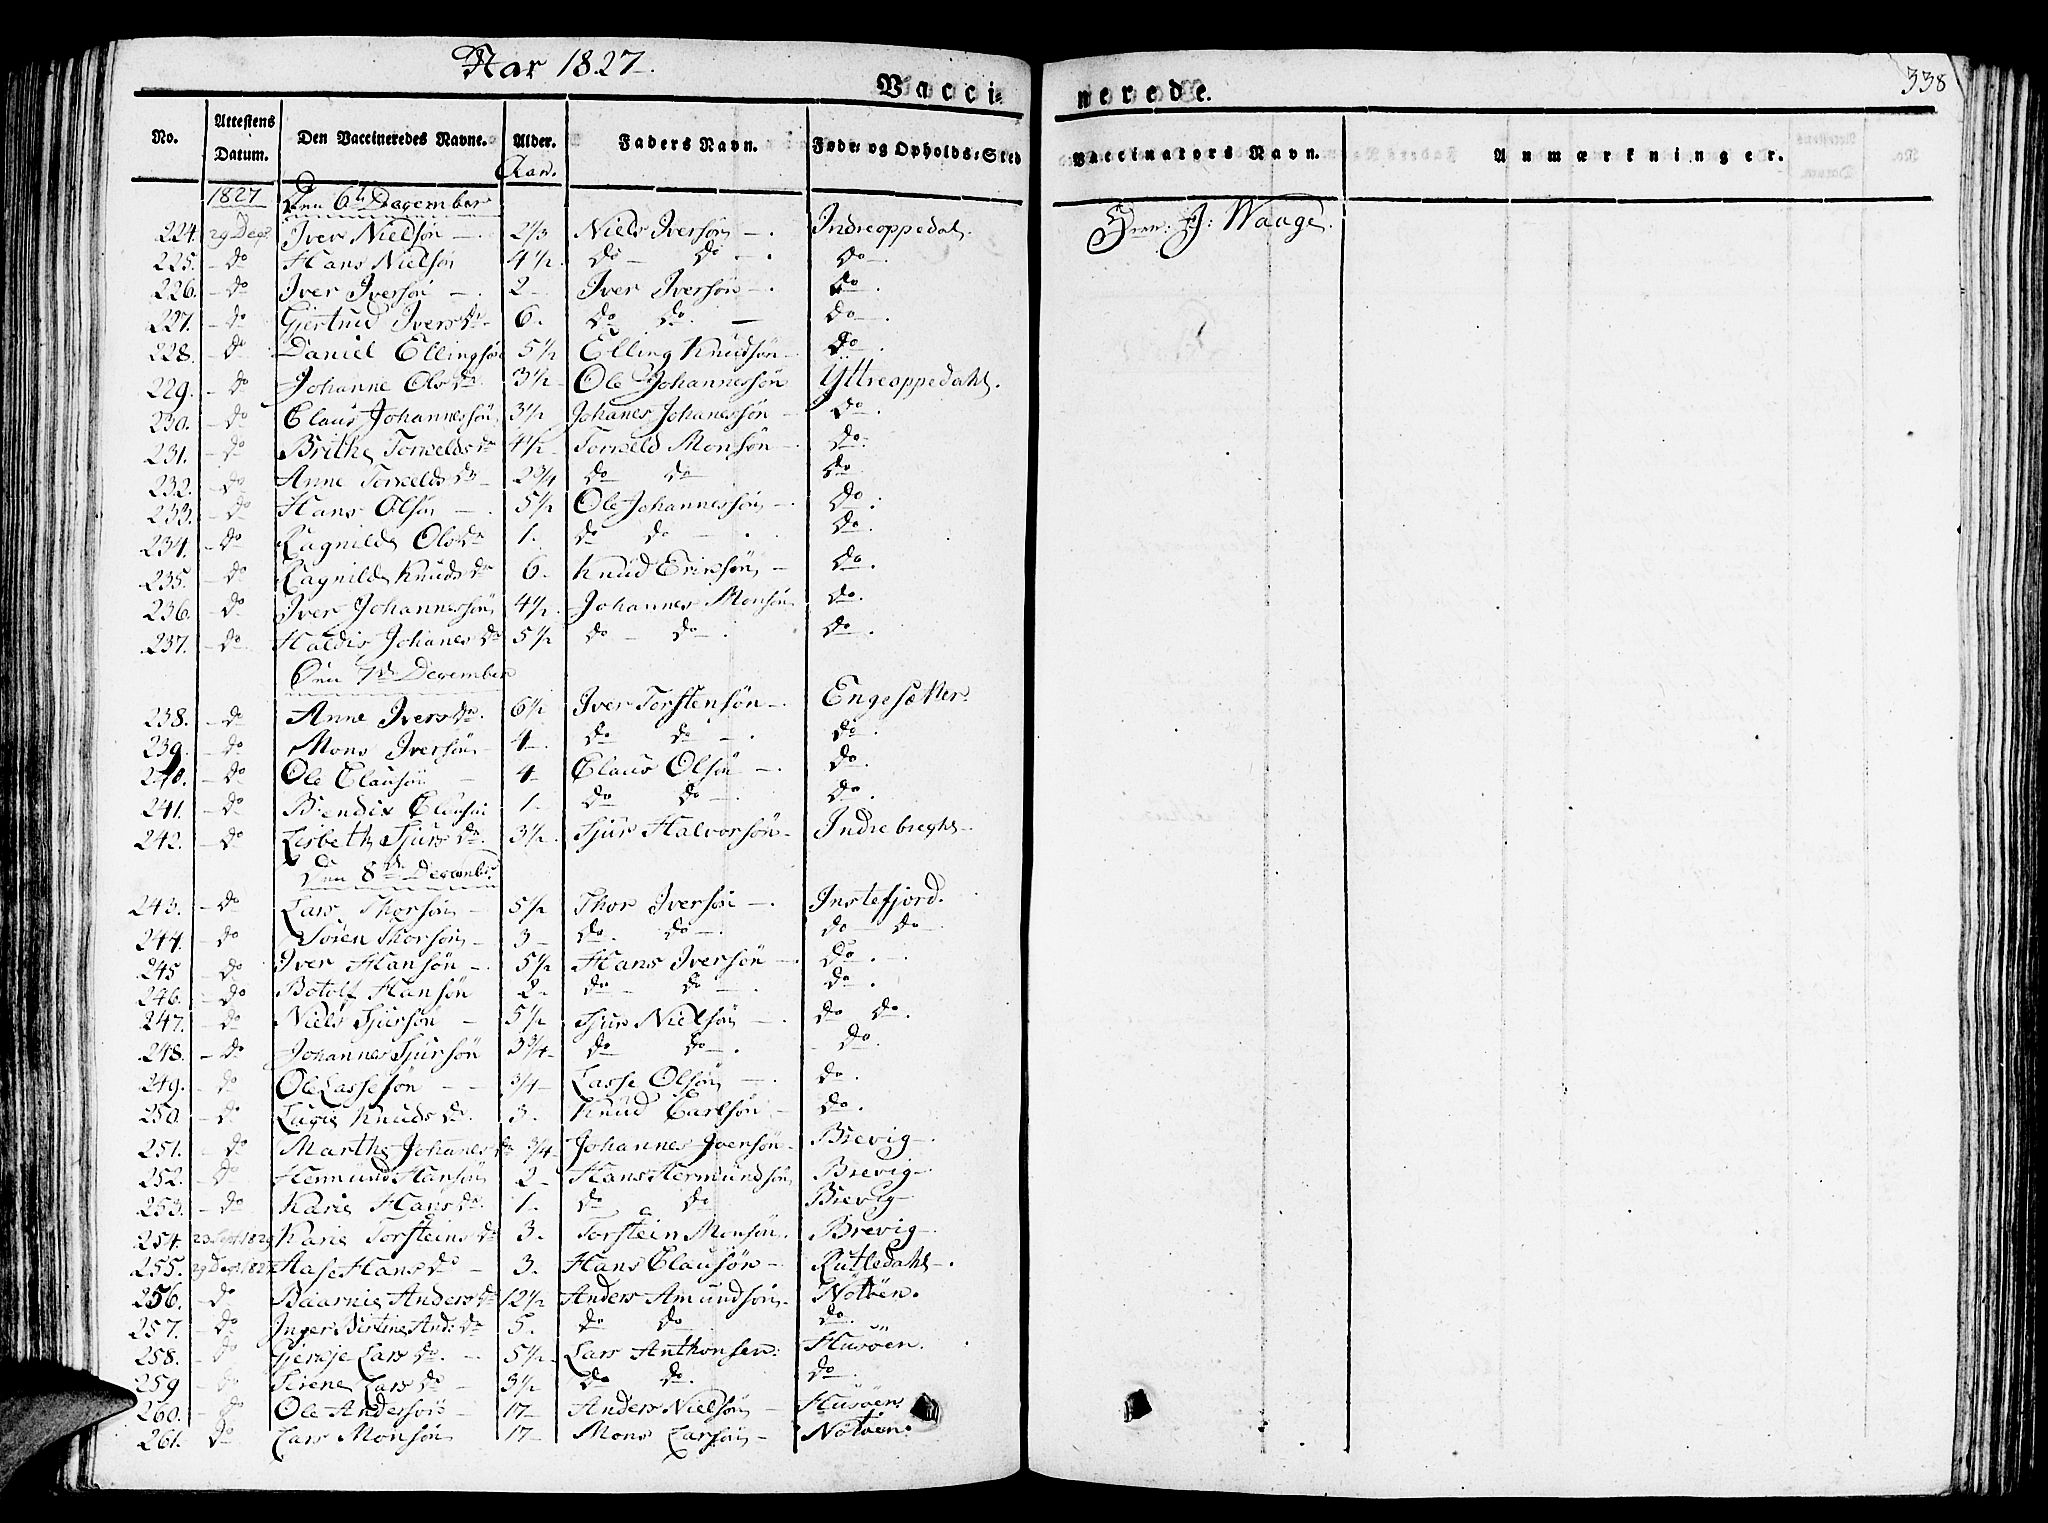 Aar 1827.
338
Vaccinerede.
No. Attestens Datum. Den Vaccineredes Navne. Alder. Faders Navn. Føde- og Opholds-Sted Vaccinators Navn. Anmærkninger.
Aar.
1827 Den 6te December
224. 29 Dec. Iver Nielsön 2/3 Niels Iversön Indreoppedal. J: Waage.
225. do Hans Nielsön 4 1/2 do do do
226. do Iver Iversön 2 Iver Iversön do
227. do Gjertrud Iversdr 6. do do do
228. do Daniel Ellingsön 5 1/2 Elling Knudsön do
229. do Johanne Olsdr. 3 1/2 Ole Johannessön Yttreoppedahl.
230. do Claus Johannessön 3 1/2 Johanes Johanessön do
231. do Brithe Torkeldsdr 4 1/2 Torkeld Monsön do
232. do Anne Torkeldsdr 2 3/4 do do do
233. do Hans Olsön 5 1/2 Ole Johannessön do
234. do Ragnilde Olsdr 1. do do do
235. do Ragnilde Knudsdr 6. Knud Eriksön do
236. do Iver Johannessön 4 1/2 Johannes Monsön do
237. do Haldis Johanesdr 5 1/2 do do do
Den 7de December
238. do Anne Iversdr. 6 1/2 Iver Torstensön Engesætter
239. do Mons Iversön 4. do do do
240. do Ole Clausön 4 Claus Olsön do
241. do Bendix Clausön 1. do do do
242. do Lisbeth Sjursdr. 3 1/2 Sjur Halvorsön Indrebregt
Den 8de December
243. do Lars Thorsön 5 1/2 Thor Iversön Instefjord.
244. do Sören Thorsön 3 do do do do
245 do Iver Hansön 5 1/2 Hans Iversön do
246. do Botolf Hansön 2 do do do
247. do Niels Sjursön 5 1/2 Sjur Nielsön do do
248. do Johannes Sjursön 3 3/4 do do do
249. do Ole Lassesön 3/4 Lasse Olsön do
250. do Knudsdr. 3. Knud Carlsön do
251. do Marthe Johanesdr 3/4 Johannes Iversön Brevig
252. do Hermund Hansön 2 Hans Hermundsön Brevig
253. do Karie Hansdr. 1. do do Brevig
254. Karie Torsteinsdr 3. Torstein Monsön. Brevig
255. 29 Dec 1827 Aase Hansdr 3. Hans Clausön Rutledahl
256. do Andersdr 12 1/2 Anders Amundsön Nötöen.
257. do Inger Bertine And:dr 5. do do do
258. do Gjertje Larsdr. 5 1/2 Lars Anthonsen: Husöen.
259 do Sirene Larsdr 3 1/2 do do. do
260. do Ole Andersön 17 Anders Nielsön Husöen
261. do Lars Monsön 17 Mons Larsön Nötöen.